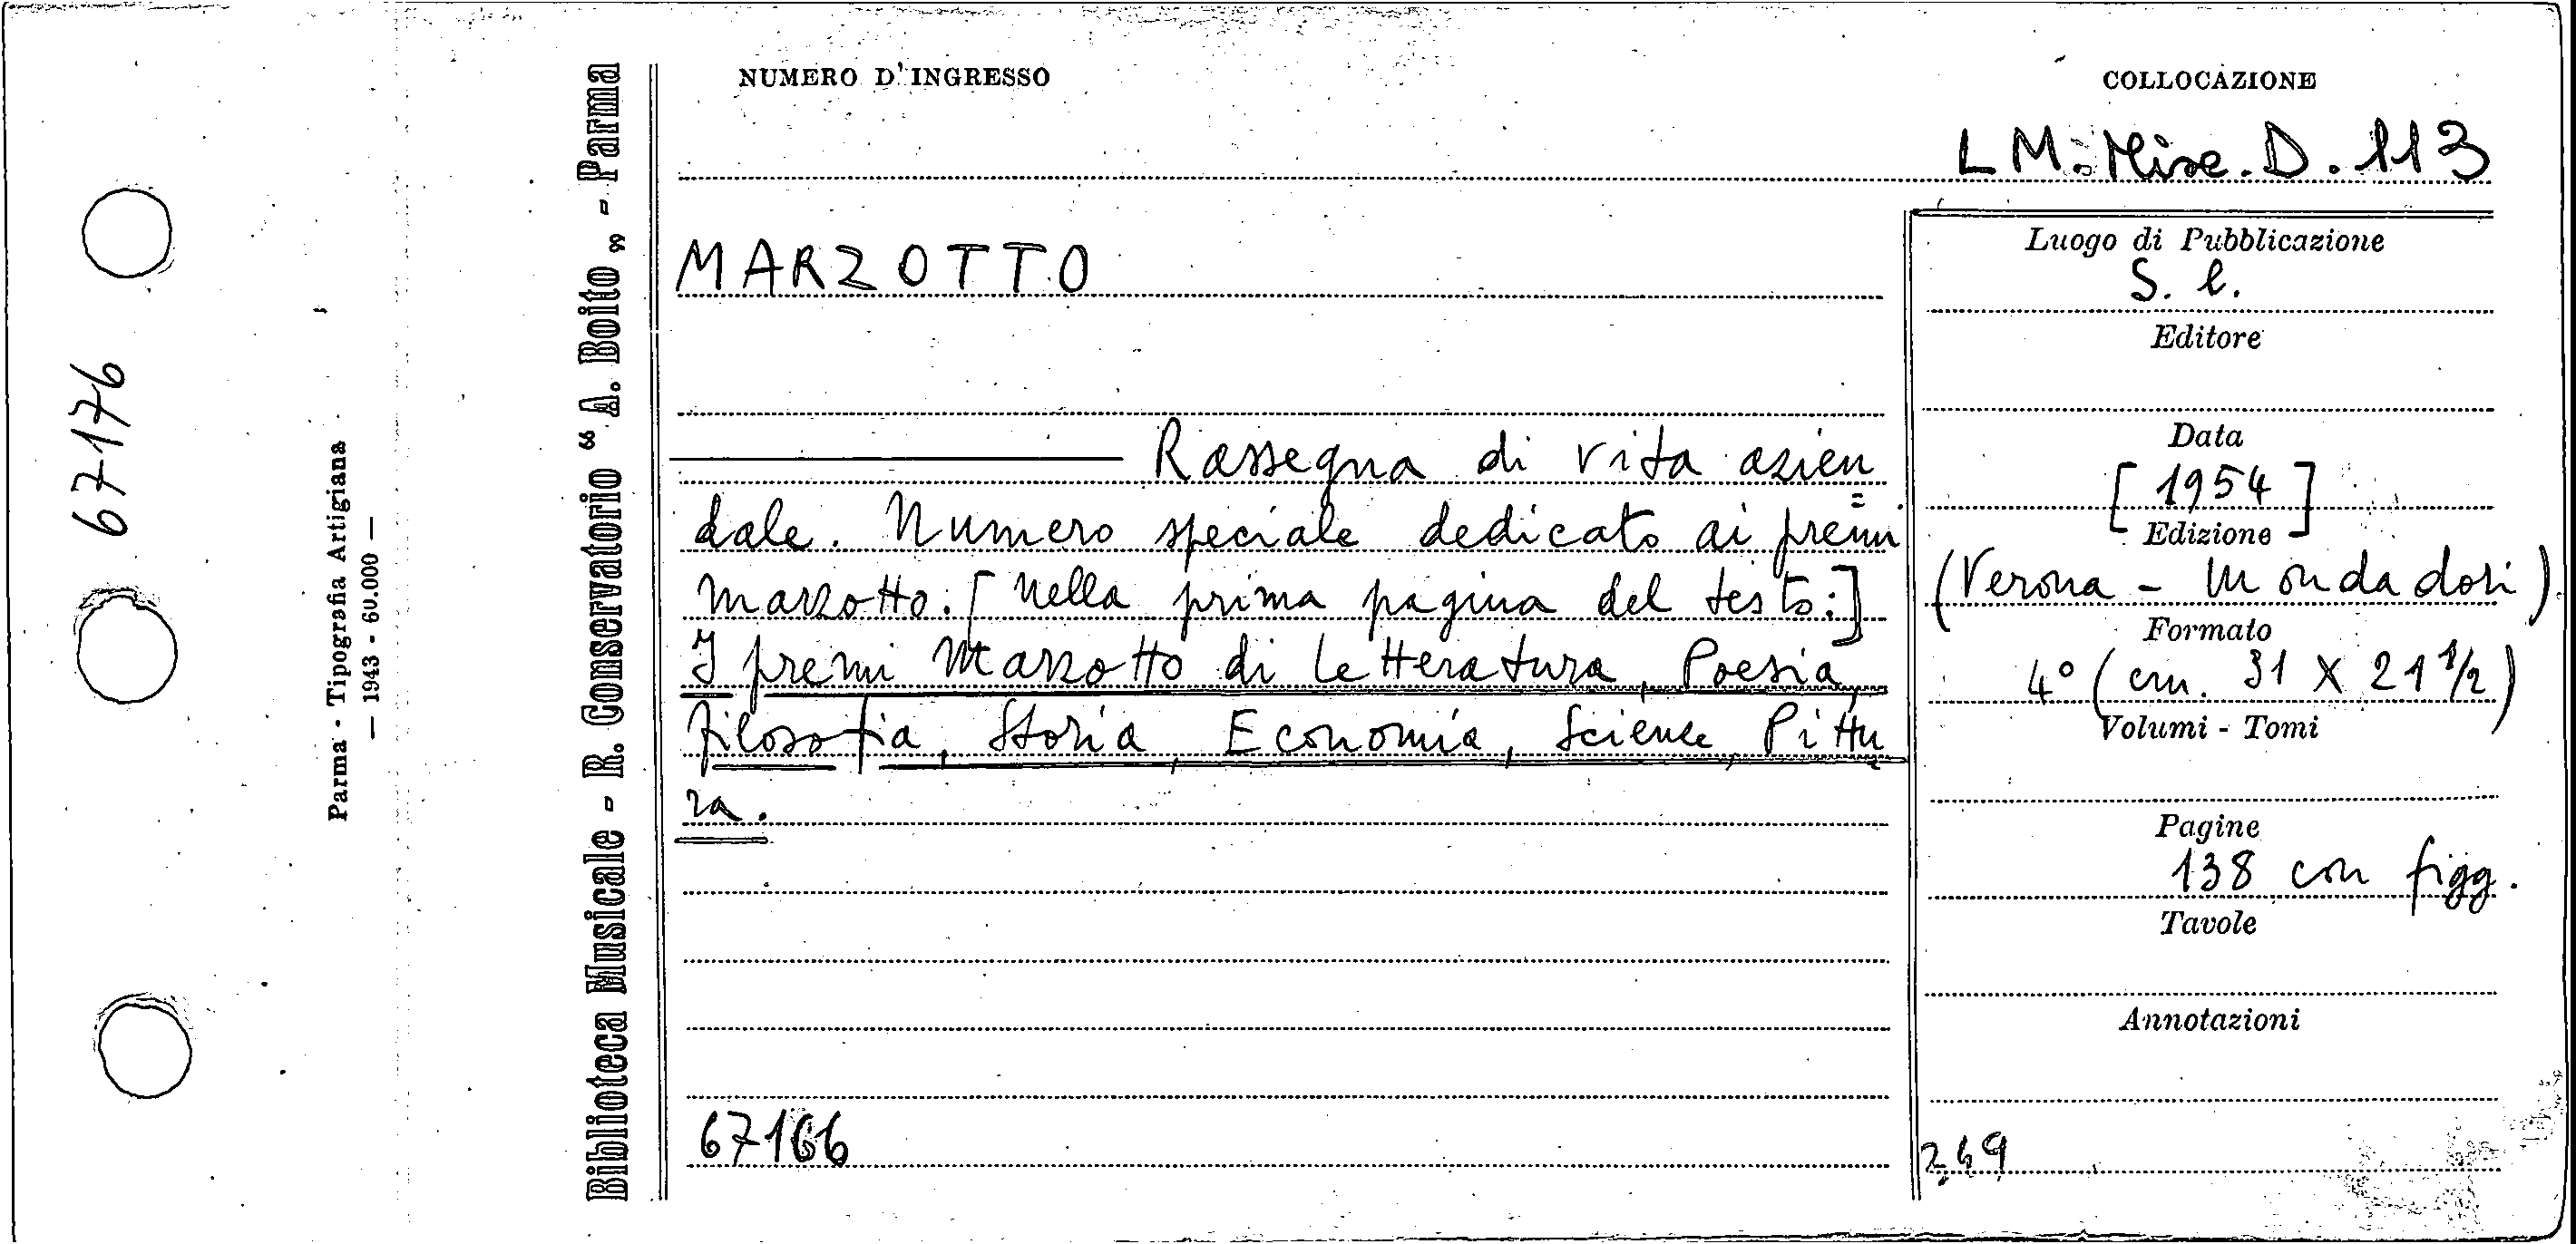 67176
Parma - Tipografia Artigiana
— 1943 - 60.000 —
Biblioteca Musicale - R. Conservatorio “ A. Boito „ - Parma
NUMERO D'INGRESSO
COLLOCAZIONE
LM. Misc. D. 113
MARZOTTO
Rassegna di vita azien=
dale. Numero speciale dedicato ai premi
Marzotto. [Nella prima pagina del testo:]
I premi Marzotto di Letteratura, Poesia,
Filosofia, Storia, Economia, Scienze, Pittu
ra.
67166
Luogo di Pubblicazione
S. l.
Editore
Data
[1954]
Edizione
(Verona - Mondadori)
Formato
4° (cm. 31 X 21 1/2)
Volumi - Tomi
Pagine
138 con figg.
Tavole
Annotazioni